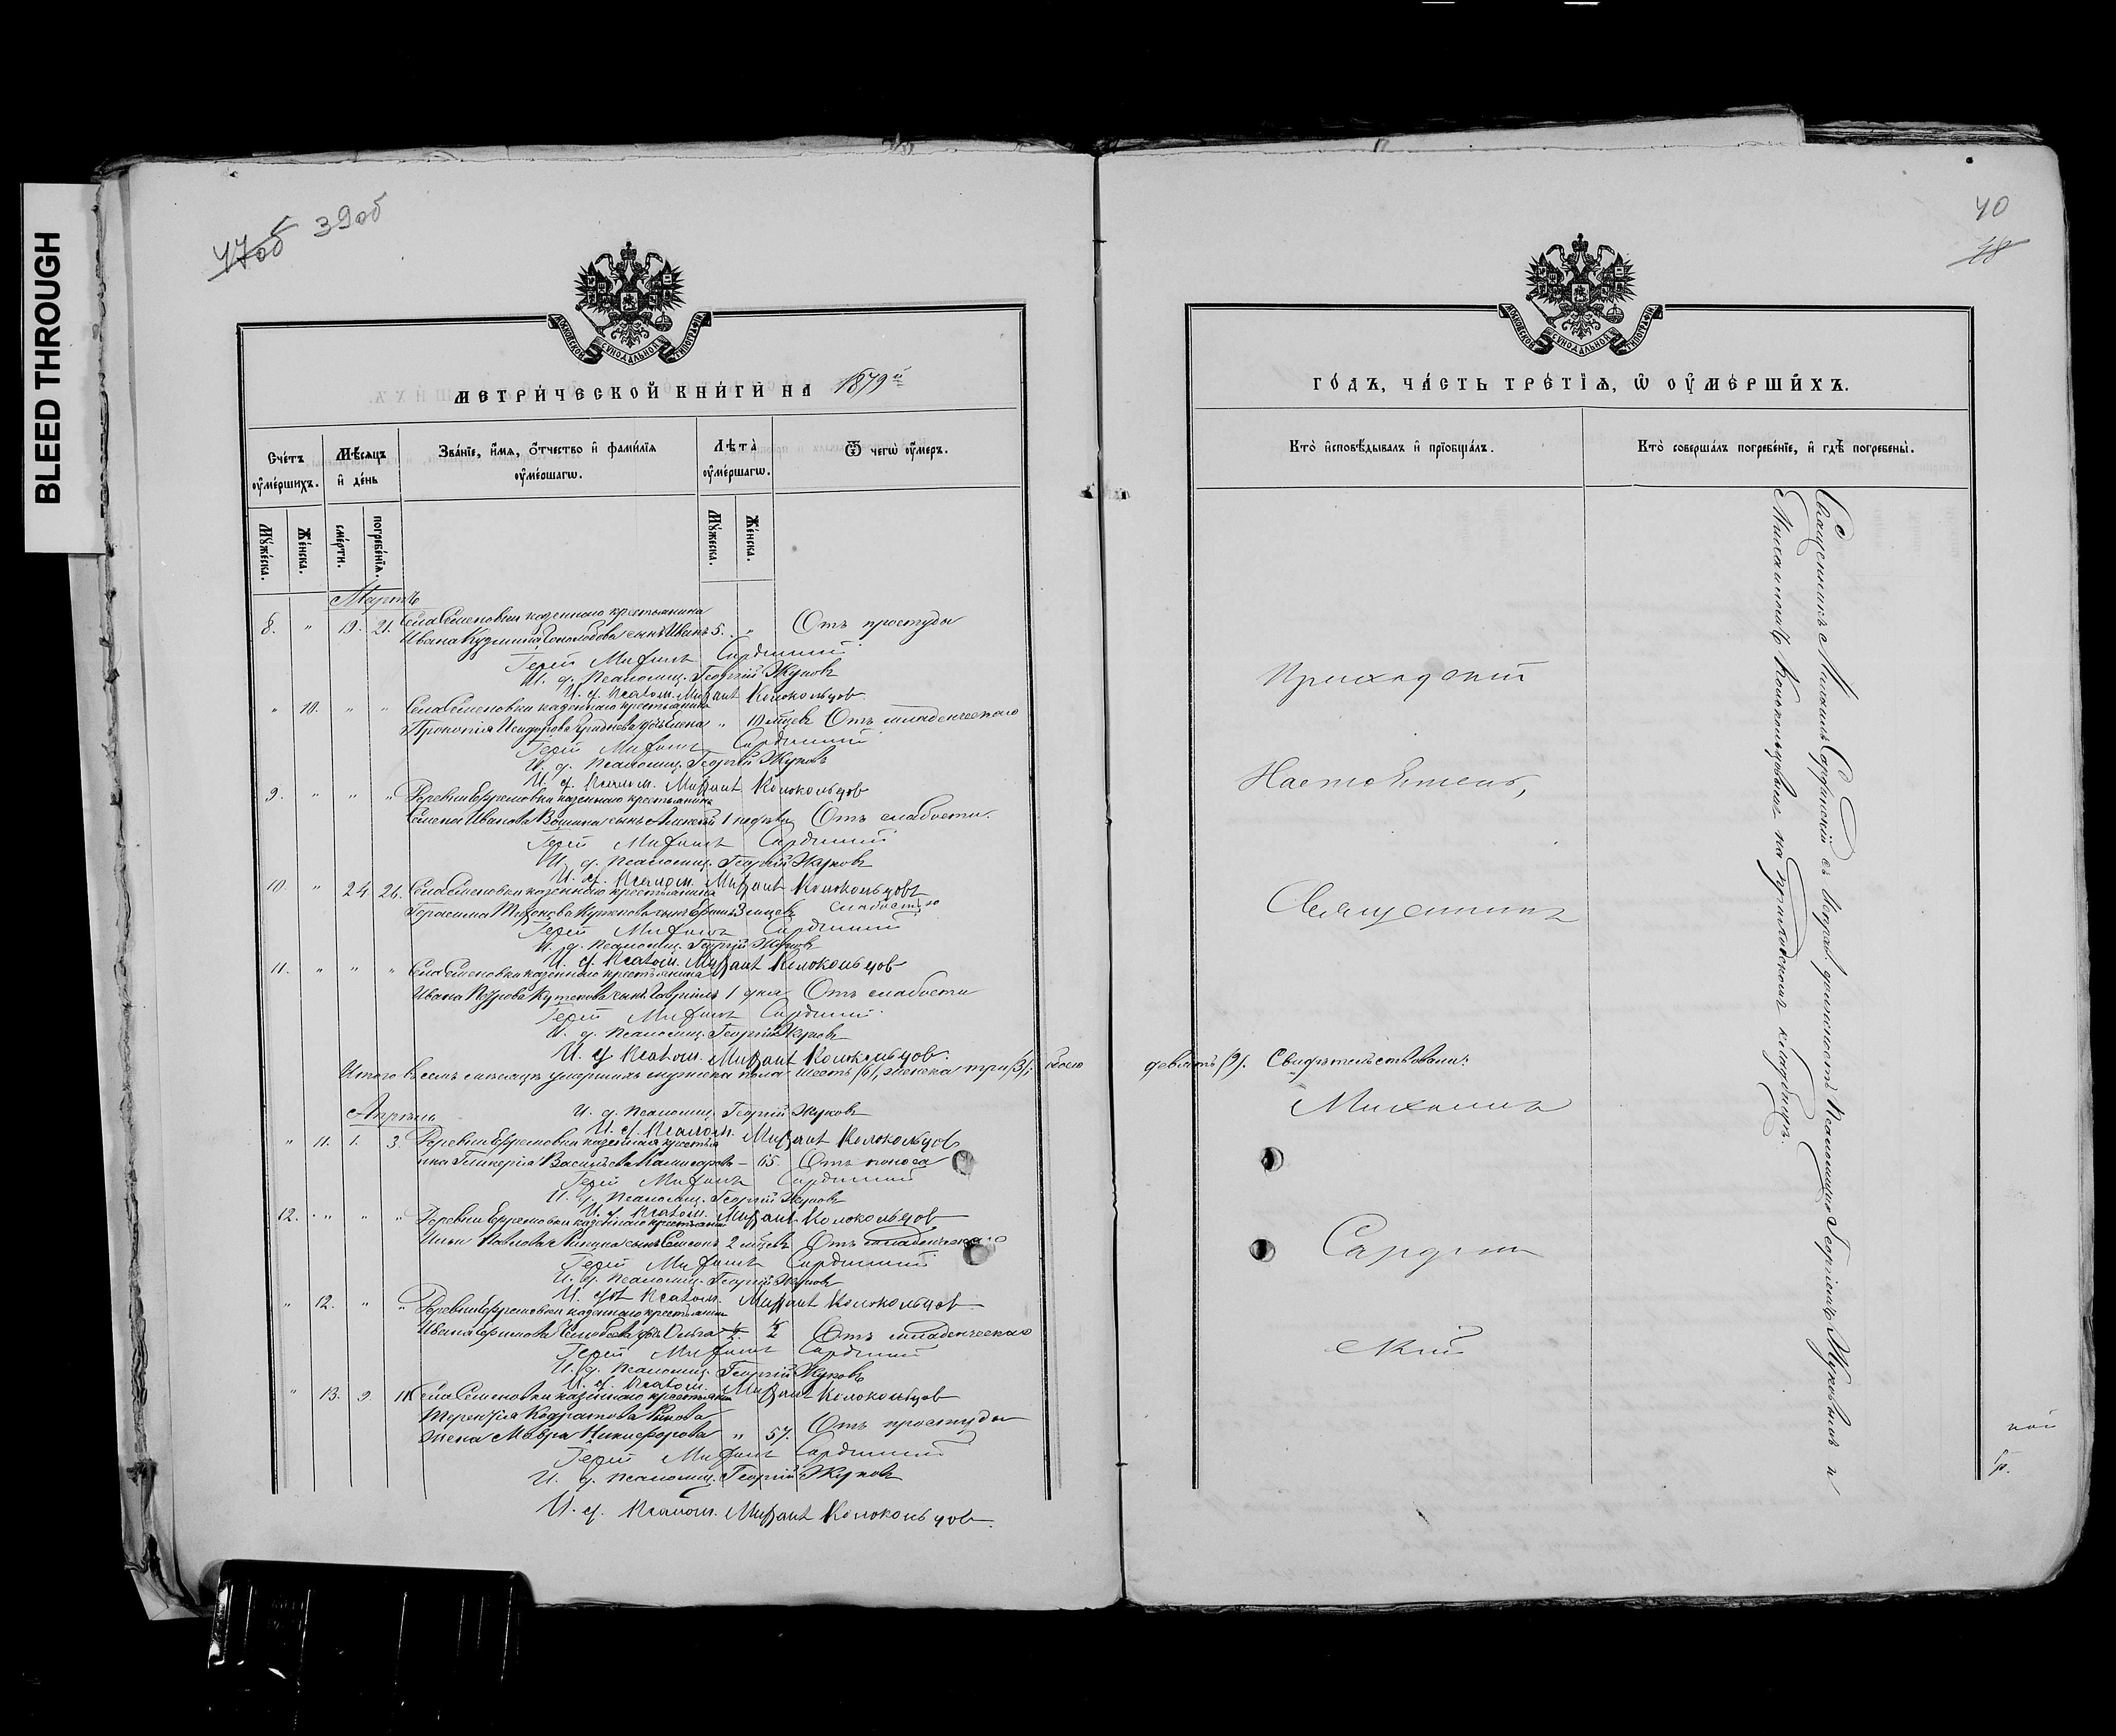 BLEED THROUGH
47об 39об
МОСКОВСКОЙ СѴНОДАЛЬНОЙ ТИПОГРАФІИ
МЕТРИ́ЧЕСКОЙ КНИ́ГИ НА 1879й
Сче́тъ оумершихъ.
Мѣсяцъ и де́нь
Зва́ніе, и́мя, о́тчество и фами́лія оуме́ршагѡ.
Лѣта̀ оуме́ршагѡ.
Ѿ чегѡ̀ оу́меръ.
Му́жеска.
Же́нска.
сме́рти.
погребе́нія.
Му́жеска.
Же́нска.
Мартъ
8. " 19. 21. Села Семеновки казеннаго крестьянина
Ивана Кузмина сынъ Иванъ 5. " Отъ простуды
Іерей Михаилъ Сардинскій
И. д. Псаломщ. Георгій Жуковъ
И. д. Псалом. Михаилъ Колокольцовъ
" 10. " " Села Семеновки казеннаго крестьянина
Прокопія Исидорова дочь Елена " 10 мцевъ Отъ младенческаго
Іерей Михаилъ Сардинскій
И. д. Псаломщ. Георгій Жуковъ
И. д. Псалом. Михаилъ Колокольцовъ
9. " " " Деревни Ефремовки казеннаго крестьянина
Семена Иванова сынъ Алексѣй 1 недѣли Отъ слабости.
Іерей Михаилъ Сардинскій
И. д. Псаломщ. Георгій Жуковъ
И. д. Псалом. Михаилъ Колокольцовъ
10. " 24 26. Села Семеновки казеннаго крестьянина
Герасима Тихонова сынъ 3 мцевъ слабостію
Іерей Михаилъ Сардинскій
И. д. Псаломщ. Георгій Жуковъ
И. д. Псалом. Михаилъ Колокольцовъ
11. " " " Села Семеновки казеннаго крестьянина
Ивана сынъ Гавріилъ 1 дня Отъ слабости
Іерей Михаилъ Сардинскій
И. д. Псаломщ. Георгій Жуковъ
И. д. Псалом. Михаилъ Колокольцовъ.
Итого въ семъ мѣсяцѣ умершихъ мужеска пола шесть /6/, женска три /3/; обоего
Апрѣль И. д. Псаломщ. Георгій Жуковъ
И. д. Псалом. Михаилъ Колокольцовъ
" 11. 1. 3. Деревни Ефремовки казенная крестья
нка Гликерія Васильева – 65. Отъ поноса
Іерей Михаилъ Сардинскій
И. д. Псаломщ. Георгій Жуковъ
И. д. Псалом. Михаилъ Колокольцовъ
12. " " " Деревни Ефремовки казеннаго крестьянина
Ильи Павлова сынъ 2 мцевъ Отъ младенческаго
Іерей Михаилъ Сардинскій
И. д. Псаломщ. Георгій Жуковъ
И. д. Псалом. Михаилъ Колокольцовъ
" 12. " " Деревни Ефремовки казеннаго крестьянина
Ивана дочь Ольга Отъ младенческаго
Іерей Михаилъ Сардинскій
И. д. Псаломщ. Георгій Жуковъ
И. д. Псалом. Михаилъ Колокольцовъ
" 13. 9. 11. Села Семеновки казеннаго крестьянина
Терентія
жена Мавра Никифорова " 57. Отъ простуды
Іерей Михаилъ Сардинскій
И. д. Псаломщ. Георгій Жуковъ
И. д. Псалом. Михаилъ Колокольцовъ.
40
48
МОСКОВСКОЙ СѴНОДАЛЬНОЙ ТИПОГРАФІИ
ГО́ДЪ, ЧА́СТЬ ТРЕ́ТІЯ, Ѡ ОУМЕ́РШИХЪ.
Кто̀ исповѣ́дывалъ и пріобща́лъ.
Кто̀ соверша́лъ погребе́ніе, и гдѣ̀ погребены̀.
Приходскій
Настоятель,
Священникъ
девять /9/. Свидѣтельствовали:
Михаилъ
Сардин
скій
Священникъ Михаилъ Сардинскій съ Исправ. должность Псаломщика Георгіемъ Жуковымъ и
Михаиломъ Колокольцовымъ на приходскомъ кладбищѣ.